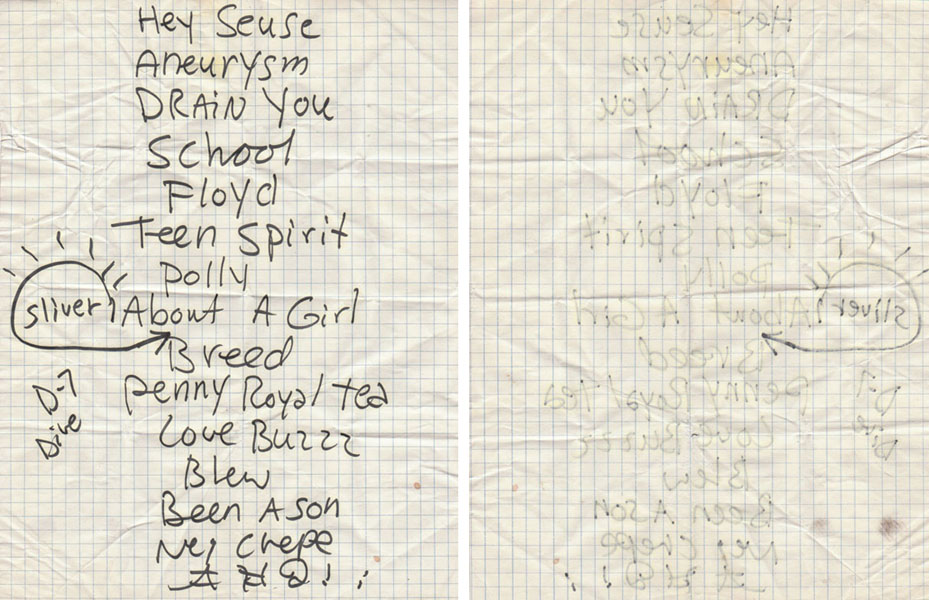 Hey Seuse
Aneurysm
DRAiN You
School
Floyd
Teen Spirit
polly
sliver
About A Girl
Breed
D-7
Penny Royal tea
Dive
Love Buzzz
Blew
Been A son
Nej Crepe